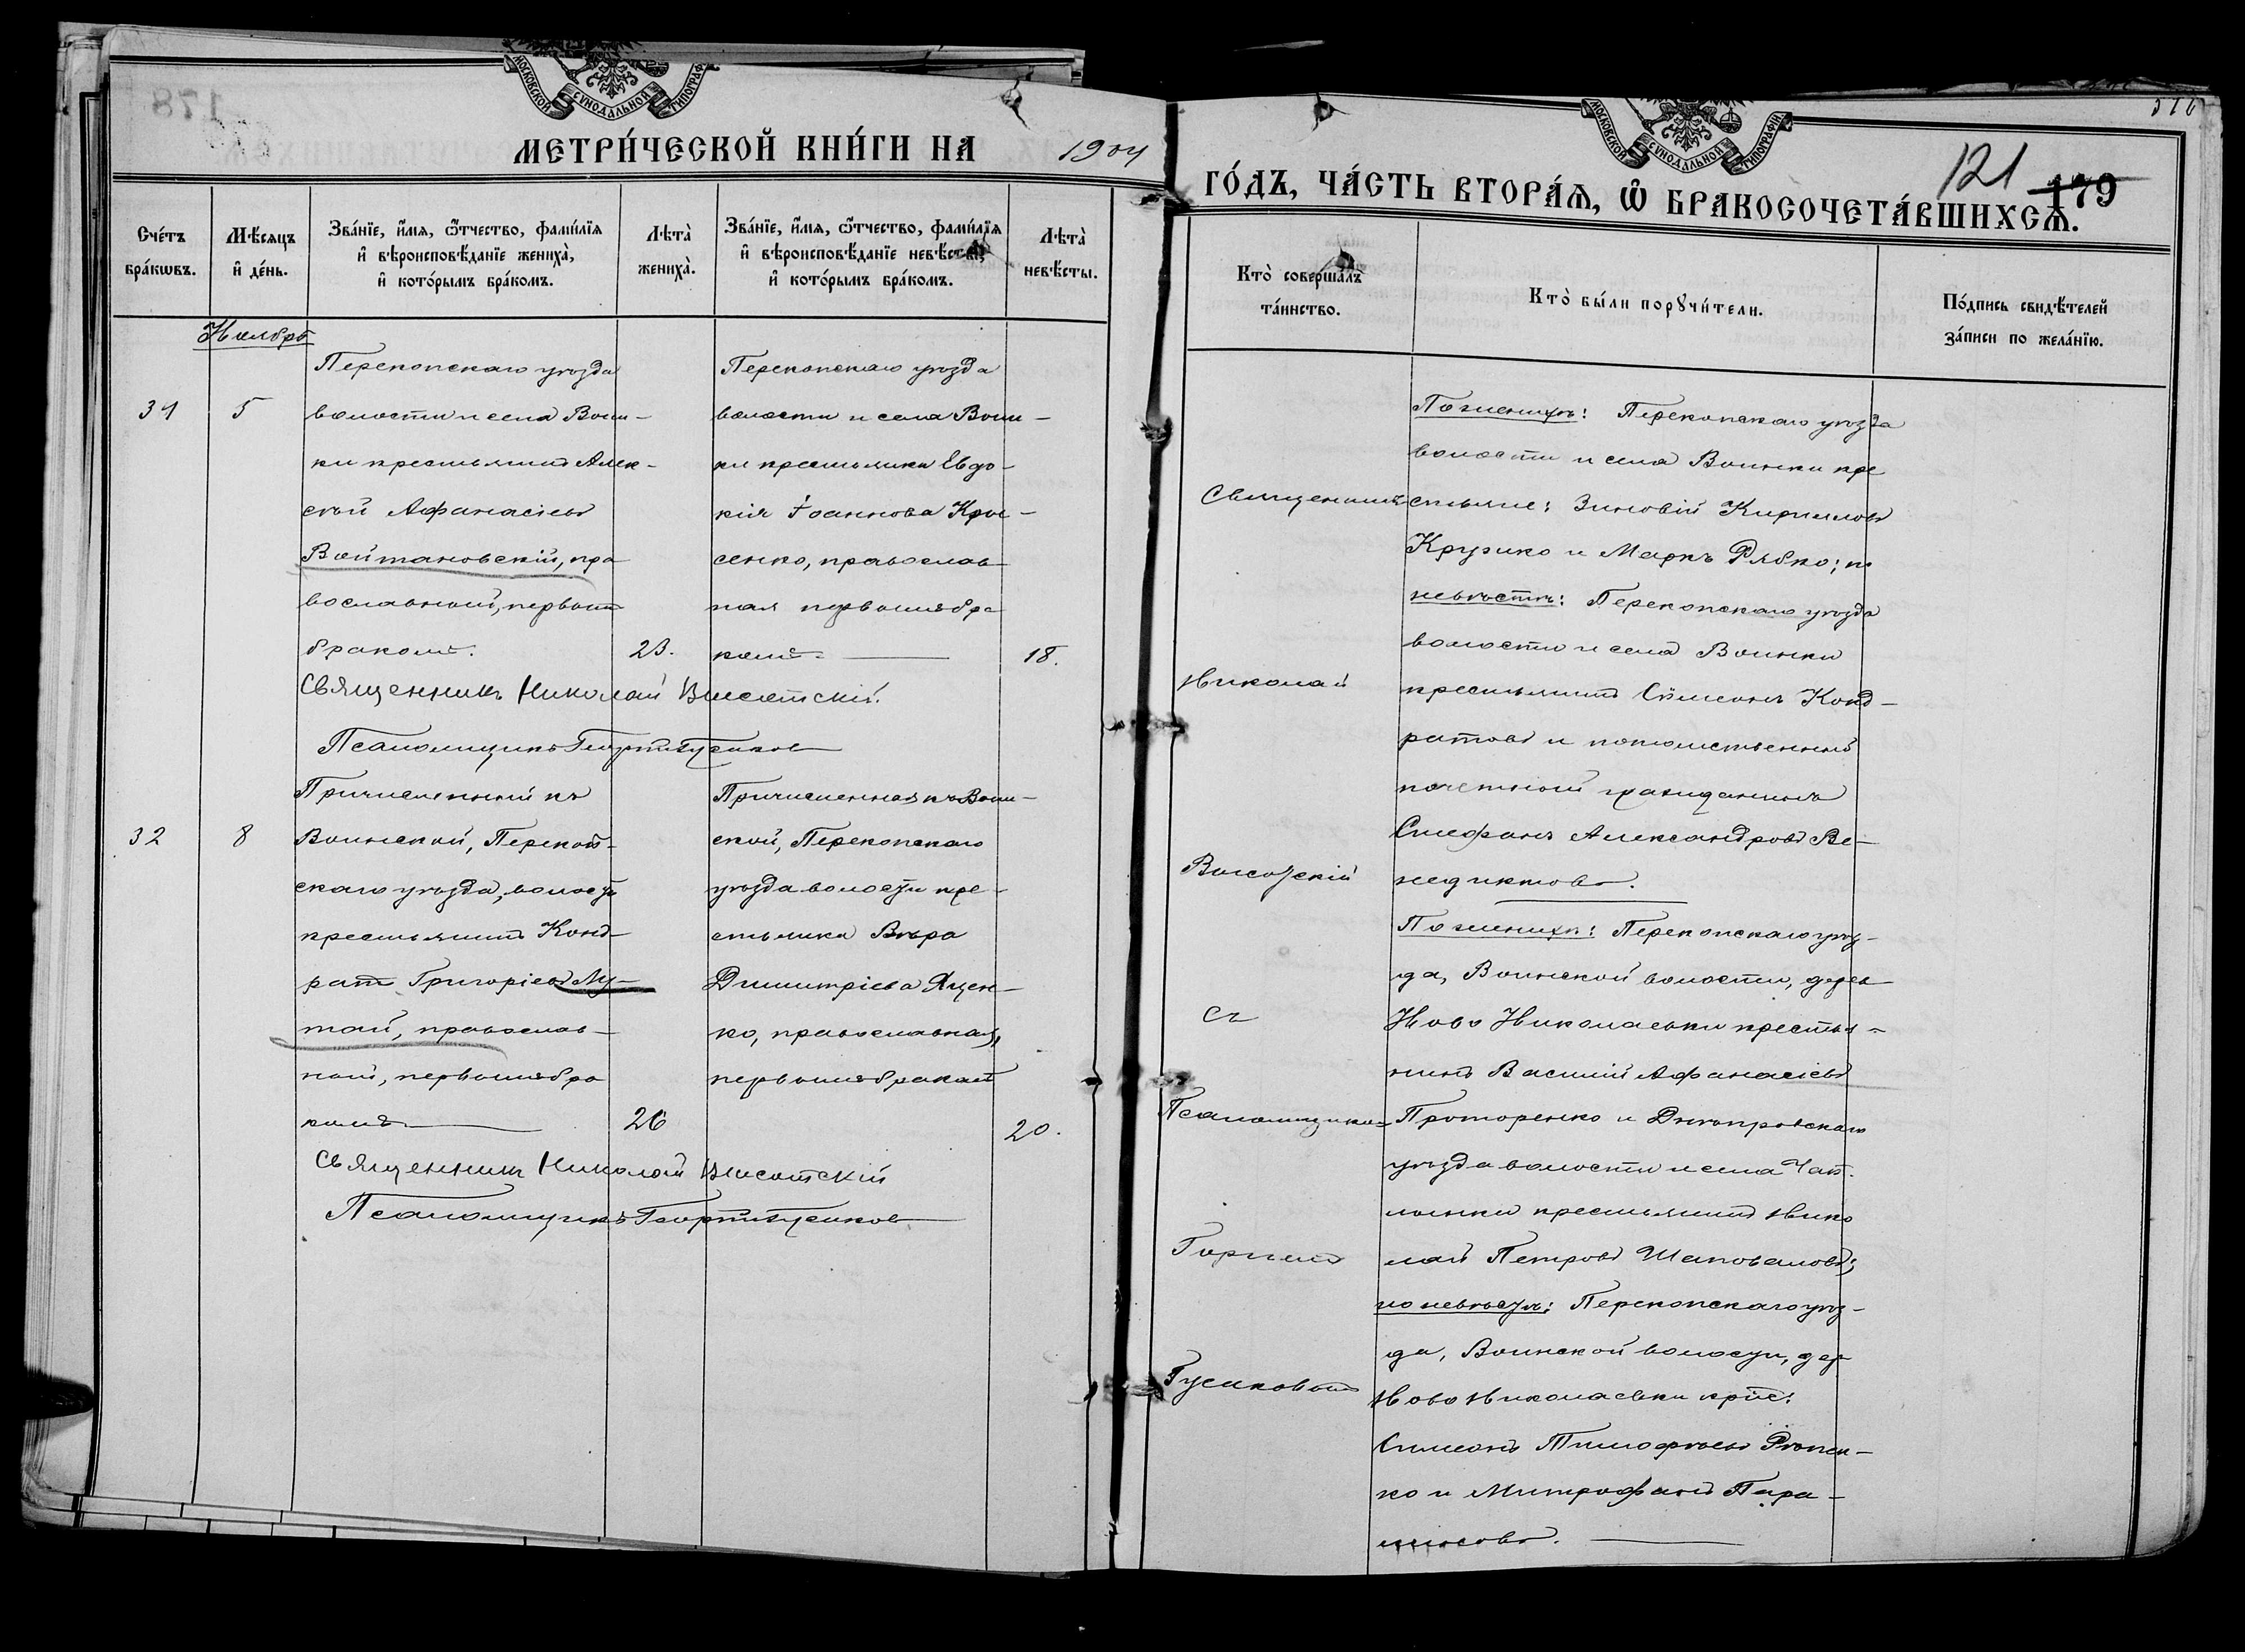 МОСКОВСКОЙ СѴНОДАЛЬНОЙ ТИПОГРАФІИ
МЕТРИ́ЧЕСКОЙ КНИ́ГИ НА 1904
Сче́тъ бра́кѡвъ.
Мѣ́сяцъ и҆ де́нь.
Зва́нїе, и҆́мѧ, ѻ҆́тчество, фами́лїѧ
и҆ вѣроисповѣ́данїе жениха̀,
и҆ кото́рымъ бра́комъ.
Лѣта̀ жениха̀.
Зва́нїе, и҆́мѧ, ѻ҆́тчество, фами́лїѧ
и҆ вѣроисповѣ́данїе невѣ́сты,
и҆ кото́рымъ бра́комъ.
Лѣта̀ невѣ́сты.
Ноябрь
31
5
Перекопскаго уѣзда
волости и села Воин-
ки крестьянинъ Алек-
сѣй Афанасіевъ
Войтановскій, пра
вославный, первымъ
бракомъ.
23.
Перекопскаго уѣзда
волости и села Воин-
ки крестьянка Евдо-
кія Іоаннова Кры-
сенко, православ-
ная первымъ бра
комъ.
18.
Священникъ Николай Высотскій.
Псаломщикъ Георгій Гусаковъ
32
8
Причисленный къ
Воинской, Перекоп-
скаго уѣзда, волости
крестьянинъ Конд-
ратъ Григоріевъ Лу-
тай, православ-
ный, первымъ бра
комъ
26
Причисленная къ Воин-
ской, Перекопскаго
уѣзда волости кре-
стьянка Вѣра
Димитріева Яцен-
ко, православная,
первымъ бракомъ
20.
Священникъ Николай Высотскій
Псаломщикъ Георгій Гусаковъ
МОСКОВСКОЙ СѴНОДАЛЬНОЙ ТИПОГРАФІИ
121 179
ГО́ДЪ, ЧА́СТЬ ВТОРА́Ѧ, Ѡ҆ БРАКОСОЧЕТА́ВШИХСѦ.
Кто̀ соверша́лъ
та́инство.
Кто̀ бы́ли порꙋчи́тели.
По́дпись свидѣ́телей
за́писи по жела́нїю.
Священникъ
Николай
Высотскій
съ
Псаломщико-
Гусаковымъ
По женихѣ: Перекопскаго уѣзда
волости и села Воинки кре
стьяне: Зиновій Кирилловъ
и Маркъ Рябко; по
невѣстѣ: Перекопскаго уѣзда
волости и села Воинки
крестьянинъ Симеонъ Конд-
ратовъ и потомственный
почетный гражданинъ
Стефанъ Александровъ Ве-
недиктовъ.
По женихѣ: Перекопскаго уѣз-
да, Воинской волости, дерев
Ново Николаевки крестья-
нинъ Василій Афанасіевъ
Проторенко и Днѣпровскаго
уѣзда волости и села Чап-
линки крестьянинъ Нико
лай Петровъ Шаповаловъ;
по невѣстѣ: Перекопскаго уѣз-
да, Воинской волости, дер
Ново Николаевки крес:
Симеонъ Тимофѣевъ Рѣпен-
ко и Митрофанъ